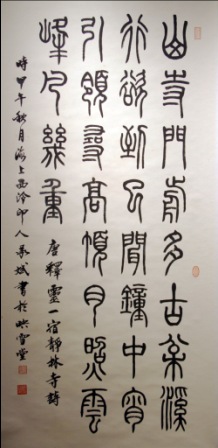 山寺門前多古松溪
行欲到已聞鐘中宵
引領尋高頂月照雲
峰凡幾重
唐釋靈一宿靜林寺詩
時甲午秋月海上西泠印人斌書於映雪堂